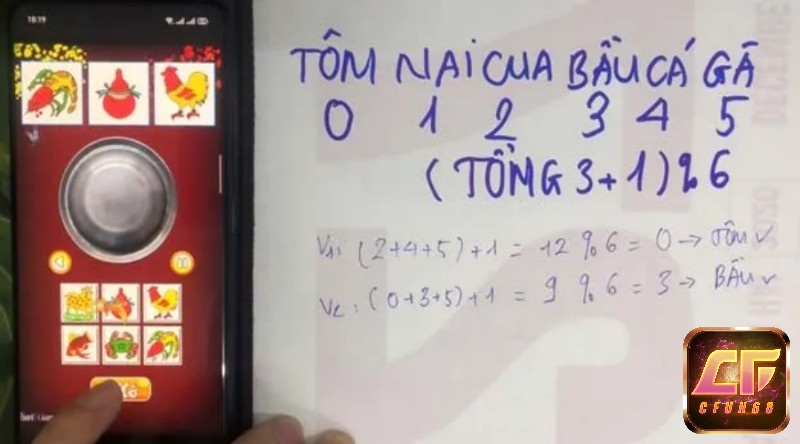 18:19
TÔM NAI CUA BẦU CÁ GÀ
0 1 2 3 4 5
(TỔNG 3+1)%6
V1: (2+4+5)+1 = 12 % 6 = 0 → TÔM ✓
V2: (0+3+5)+1 = 9 % 6 = 3 → BẦU ✓
Xổ
CF
CFUN68